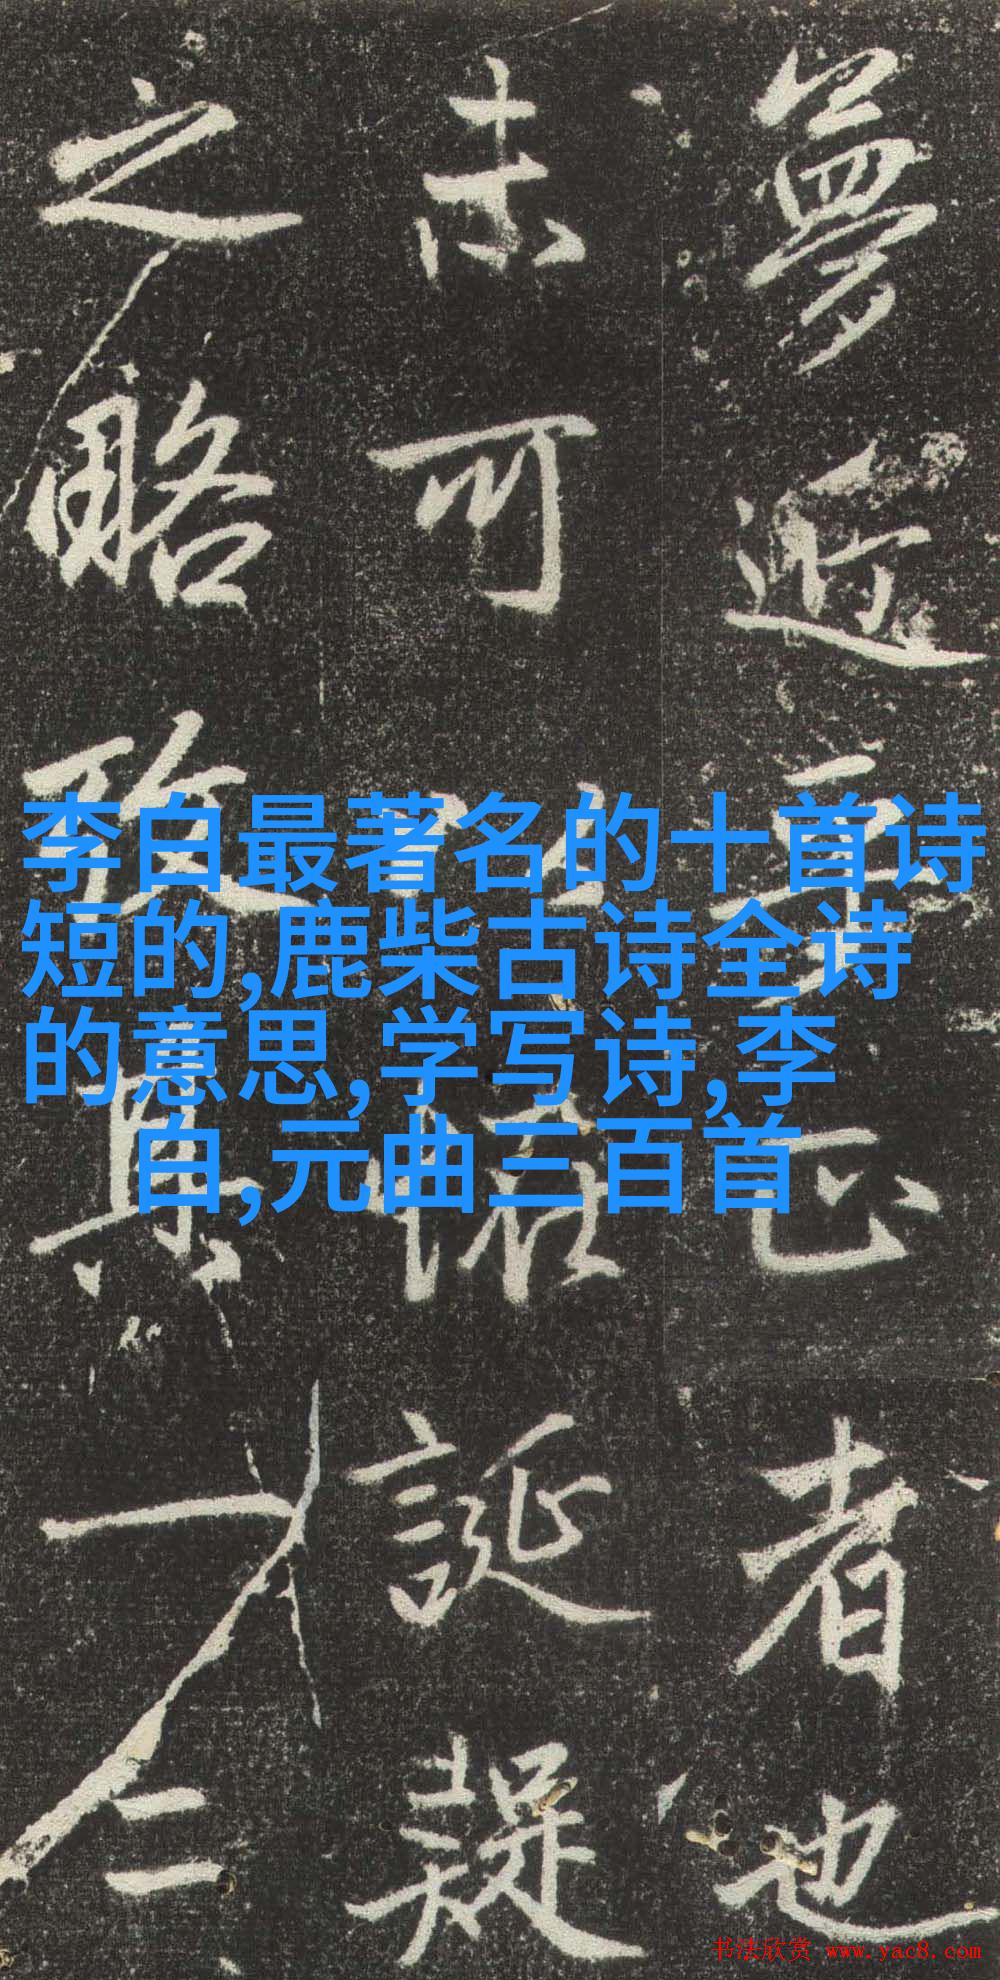 夢近正者也
未可以怪誕疑
之略一二
李白最著名的十首诗
短的,鹿柴古诗全诗
的意思,学写诗,李
白,元曲三百首
书法欣赏 www.yac8.com